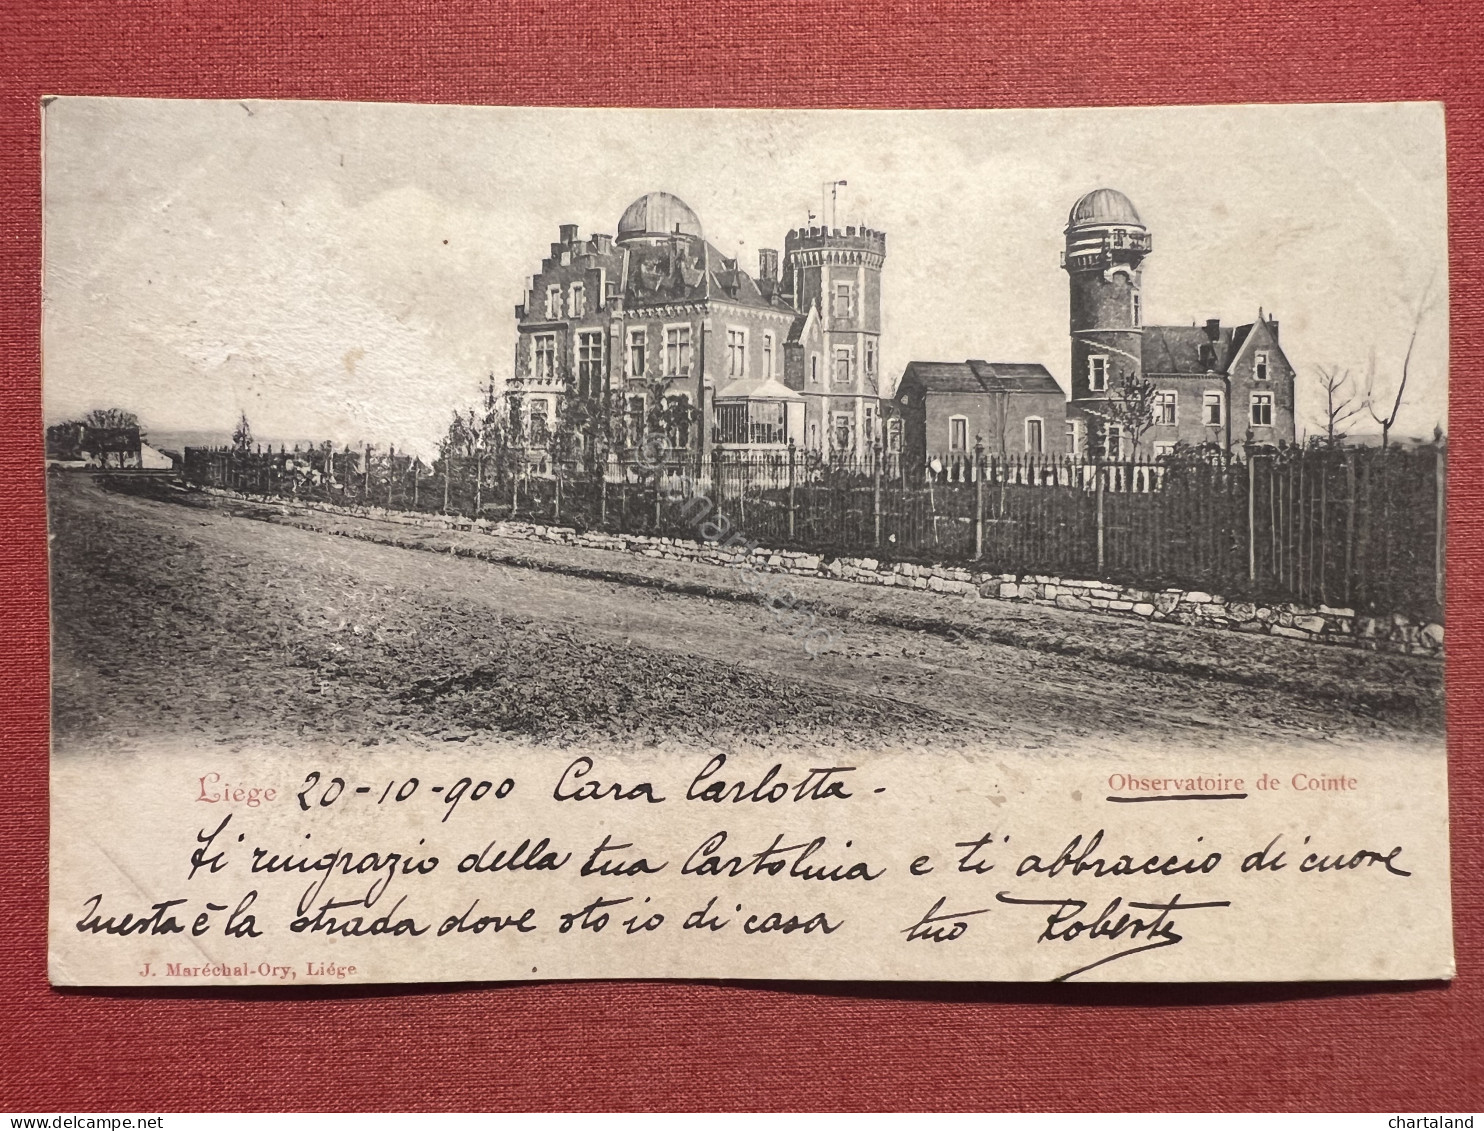 Liége 20-10-900 Cara Carlotta - Observatoire de Cointe
Ti ringrazio della tua Cartolina e ti abbraccio di cuore
Questa è la strada dove sto io di casa tuo Roberto
J. Maréchal-Ory, Liége
www.delcampe.net
chartaland